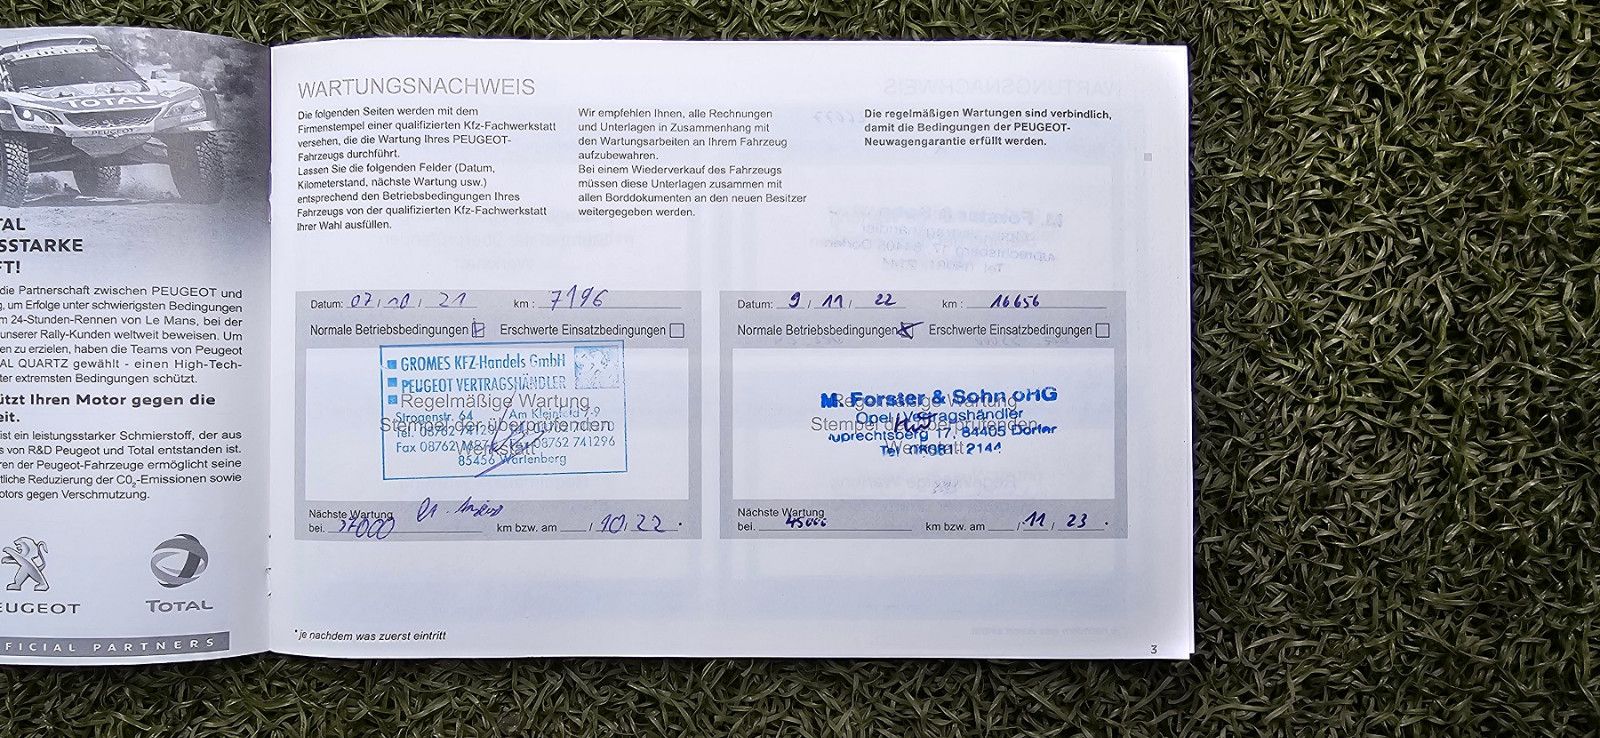 PEUGEOT
TOTAL
PEUGEOT
TAL
SSTARKE
FT!
die Partnerschaft zwischen PEUGEOT und
um Erfolge unter schwierigsten Bedingungen
m 24-Stunden-Rennen von Le Mans, bei der
unserer Rally-Kunden weltweit beweisen. Um
en zu erzielen, haben die Teams von Peugeot
AL QUARTZ gewählt - einen High-Tech-
ter extremsten Bedingungen schützt.
tzt Ihren Motor gegen die
eit.
ist ein leistungsstarker Schmierstoff, der aus
s von R&D Peugeot und Total entstanden ist.
ren der Peugeot-Fahrzeuge ermöglicht seine
tliche Reduzierung der CO2-Emissionen sowie
otors gegen Verschmutzung.
EUGEOT
TOTAL
FICIAL PARTNERS
WARTUNGSNACHWEIS
Die folgenden Seiten werden mit dem
Firmenstempel einer qualifizierten Kfz-Fachwerkstatt
versehen, die die Wartung Ihres PEUGEOT-
Fahrzeugs durchführt.
Lassen Sie die folgenden Felder (Datum,
Kilometerstand, nächste Wartung usw.)
entsprechend den Betriebsbedingungen Ihres
Fahrzeugs von der qualifizierten Kfz-Fachwerkstatt
Ihrer Wahl ausfüllen.
Wir empfehlen Ihnen, alle Rechnungen
und Unterlagen in Zusammenhang mit
den Wartungsarbeiten an Ihrem Fahrzeug
aufzubewahren.
Bei einem Wiederverkauf des Fahrzeugs
müssen diese Unterlagen zusammen mit
allen Borddokumenten an den neuen Besitzer
weitergegeben werden.
Die regelmäßigen Wartungen sind verbindlich,
damit die Bedingungen der PEUGEOT-
Neuwagengarantie erfüllt werden.
Datum: 07 / 10 / 21 km : 7196
Normale Betriebsbedingungen Erschwerte Einsatzbedingungen
GROMES KFZ-Handels GmbH
PEUGEOT VERTRAGSHÄNDLER
Regelmäßige Wartung
Strogenstr. 64 Am Kleinfeld 7-9
Stempel der überprüfenden
Tel. 08762
Werkstatt
Fax 08762 08762 741296
85456 Wartenberg
Nächste Wartung
bei. km bzw. am / 10 / 22 *
Datum: 9 / 11 / 22 km : 16656
Normale Betriebsbedingungen Erschwerte Einsatzbedingungen
M. Forster & Sohn oHG
Regelmäßige Wartung
Opel Vertragshändler
Stempel der überprüfenden
17, 84405 Dorfen
Werkstatt
2144
Nächste Wartung
bei. 45000 km bzw. am / 11 / 23 *
* je nachdem was zuerst eintritt
3